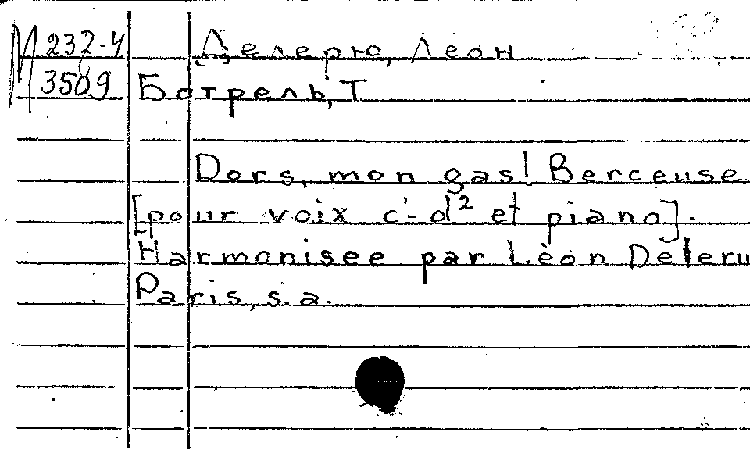 М 232-4 Делерю, Леон
3509 Ботрель, Т
Dors, mon gas! Berceuse
[pour voix c'-d² et piano].
Harmonisee par Lèon Deleru
Paris, s.a.